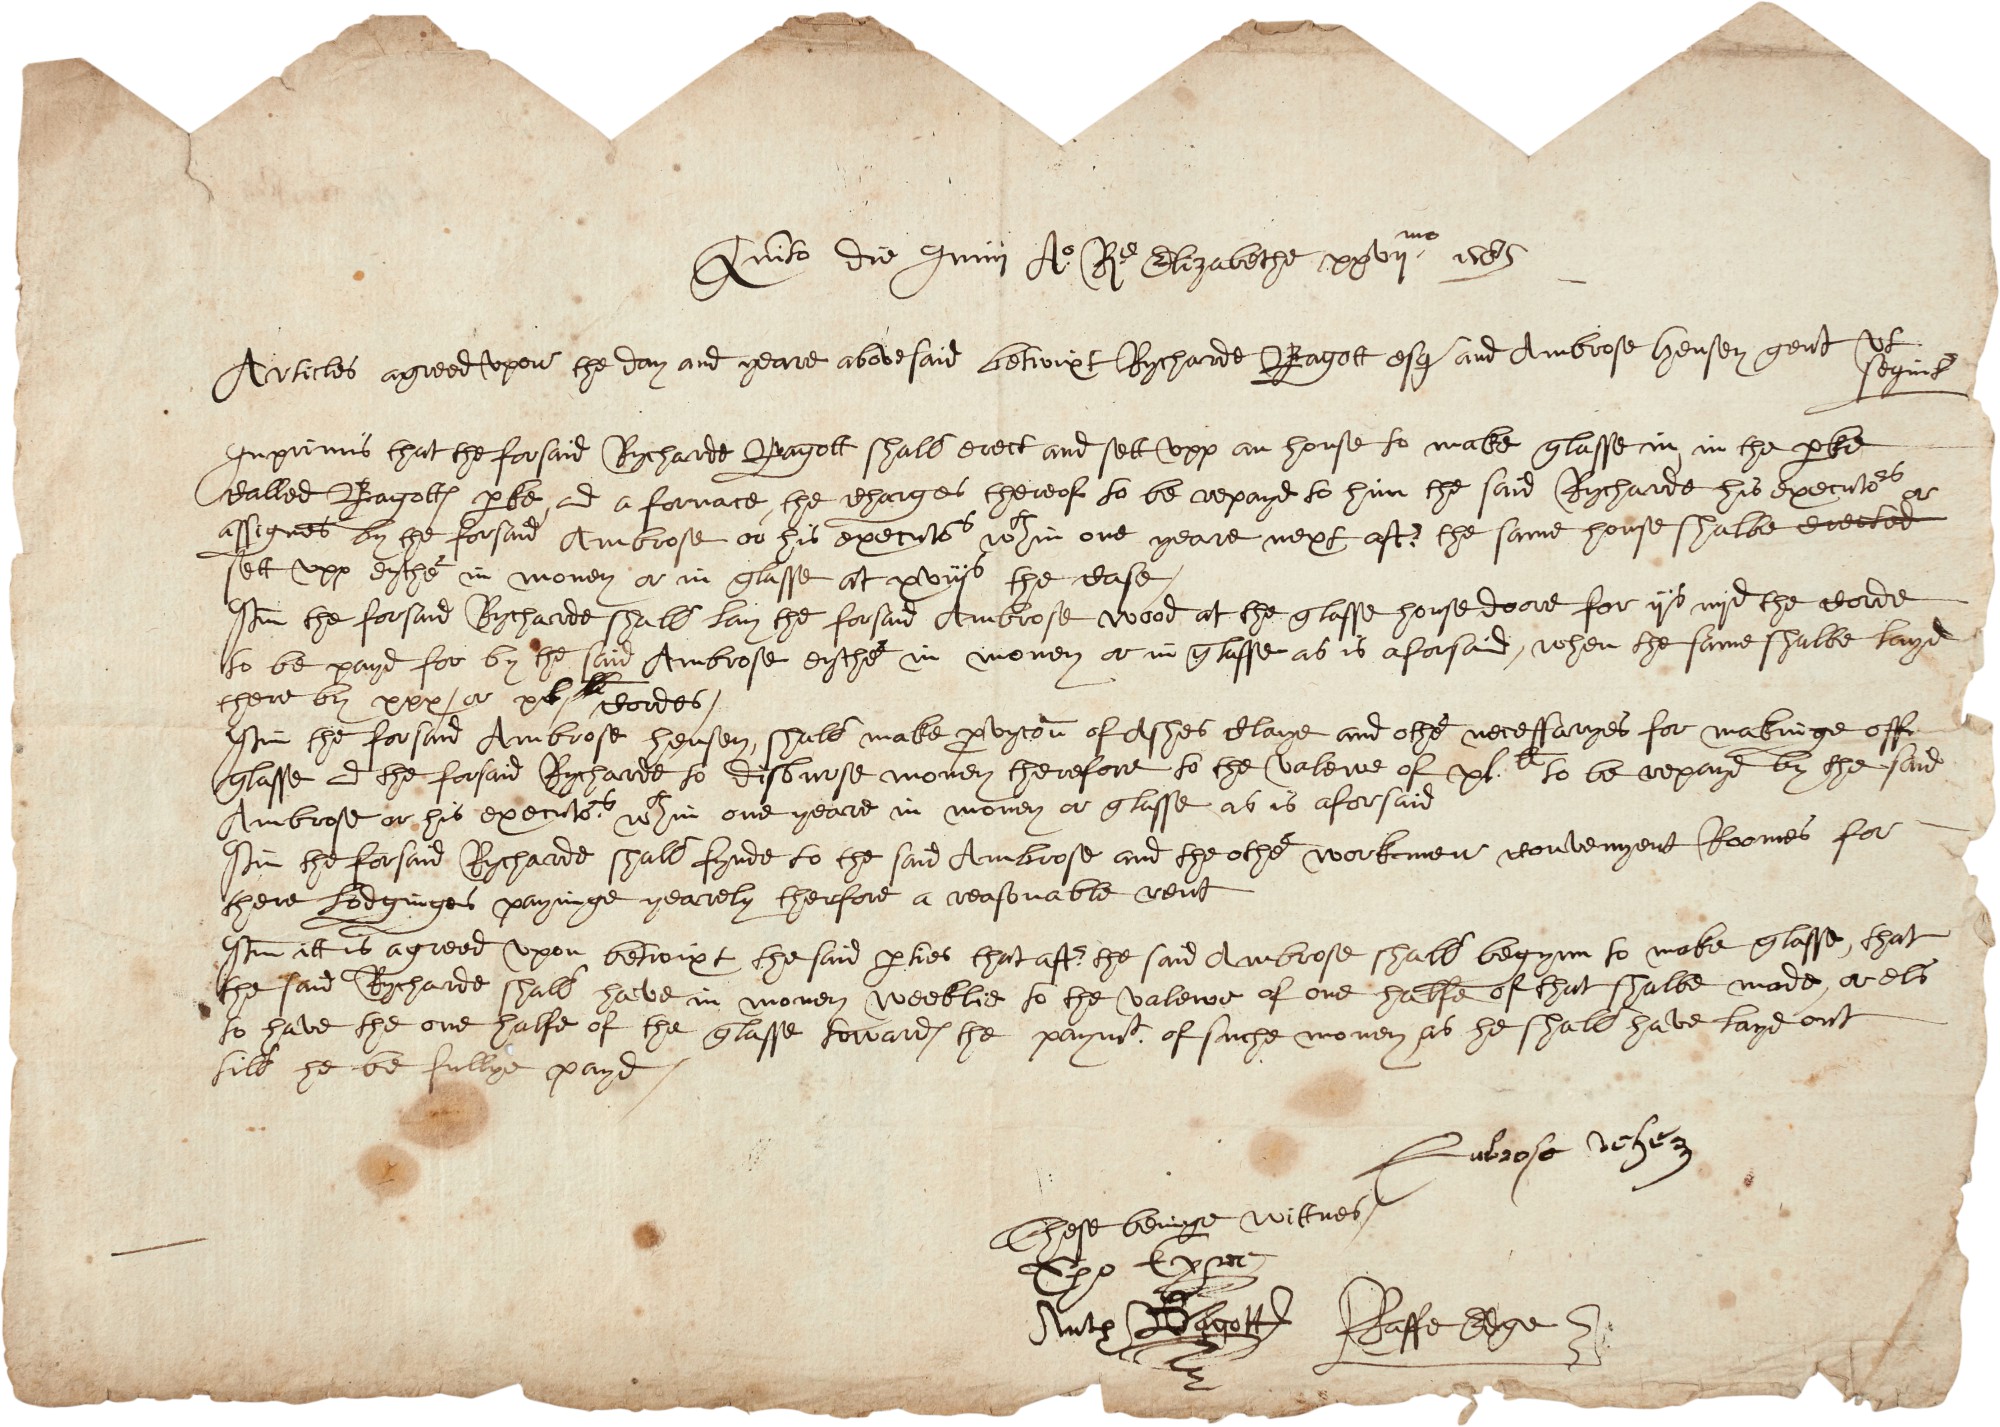 Quinto die Junij Ao Re Elizabethe xxvijmo 1585
Articles agreed vpon the day and yeare above said betwixt Rycharde Bagott esqr and Ambrose Hensey gent vt
sequit
Inprimis that the forsaid Rycharde Bagott shall erect and sett vpp an house to make glasse in, in the pke
called Bagott pke, and a fornace, the charges thereof to be repayd to him the said Rycharde his executors or
assignes by the forsaid Ambrose or his executors wthin one yeare next aftr the same house shalbe erected
sett vpp eyther in money or in glasse at xviijs the case /
Itm the forsaid Rycharde shall lay the forsaid Ambrose wood at the glasse house doore for ijs iiijd the corde
to be payd for by the said Ambrose eyther in money or in glasse as is aforsaid, when the same shalbe layd
there by xxx / or xl / cordes /
Itm the forsaid Ambrose Hensey, shall make pvycon of Ashes Claye and other necessaryes for makinge off
glasse and the forsaid Rycharde to disburse money therefore to the valewe of xl. li to be repayd by the said
Ambrose or his executors wthin one yeare in money or glasse as is aforsaid
Itm the forsaid Rycharde shall fynde to the said Ambrose and the other workmen convenyent Roomes for
there Lodginges payinge yearely therfore a reasonable rent
Itm itt is agreed vpon betwixt the said pties that aftr the said Ambrose shall begynn to make glasse, that
the said Rycharde shall have in money weeklie to the valewe of one halfe of that shalbe made, or els
to have the one halfe of the glasse toward the paymt. of suche money as he shall have layd out
till he be fullye payd /
Ambrose
These beinge wittnes /
Tho
Anth Bagott Raffe Edge